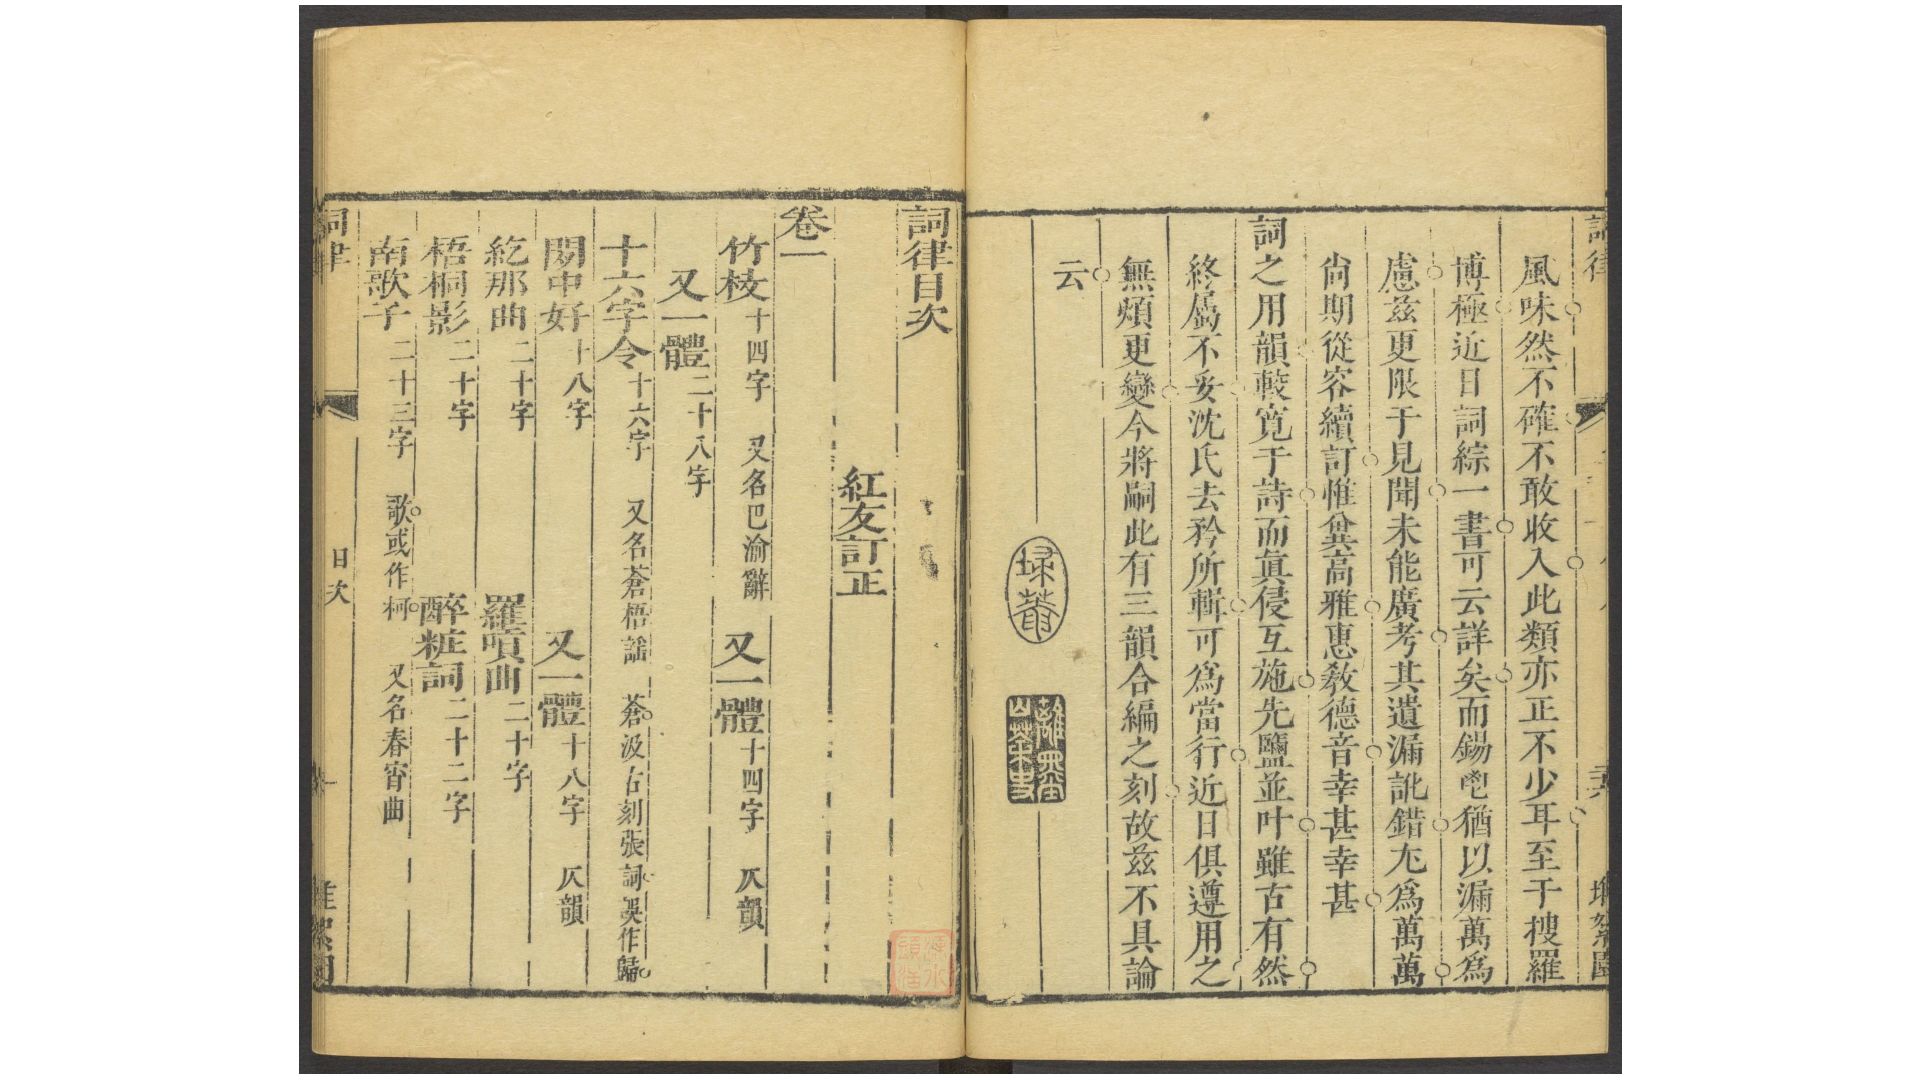 風味然不確不敢收入此類亦正不少耳至于搜羅
博極近日詞綜一書可云詳矣而錫鬯猶以漏萬爲
慮兹更限于見聞未能廣考其遺漏訛錯尢爲萬萬
尙期從容續訂惟兾高雅惠敎德音幸甚幸甚
詞之用韻較寛于詩而眞侵互施先鹽並叶雖古有然
終屬不妥沈氏去矜所輯可爲當行近日俱遵用之
無煩更變今將嗣此有三韻合編之刻故兹不具論
云
詞律目次
紅友訂正
卷一
竹枝 十四字 又名巴渝辭 又一體 十四字 仄韻
又一體 二十八字
十六字令 十六字 又名蒼梧謠 蒼汲古刻張詞吳作歸
閑中好 十八字 又一體 十八字 仄韻
紇那曲 二十字 羅嗊曲 二十字
梧桐影 二十字 醉粧詞 二十二字
南歌子 二十三字 歌或作柯 又名春宵曲
詞律 目次